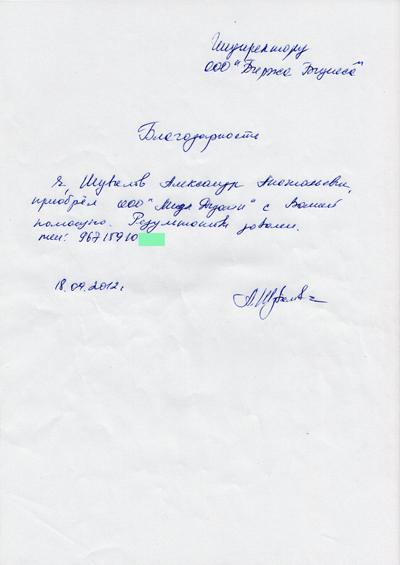 Гендиректору
ООО "Биржа Бизнеса"
Благодарность
Я, Шувалов Александр Анатольевич,
приобрёл ООО "Медл Дизайн" с Вашей
помощью. Результатом доволен.
тел: 96715910
18.09.2012г
А.Шувалов